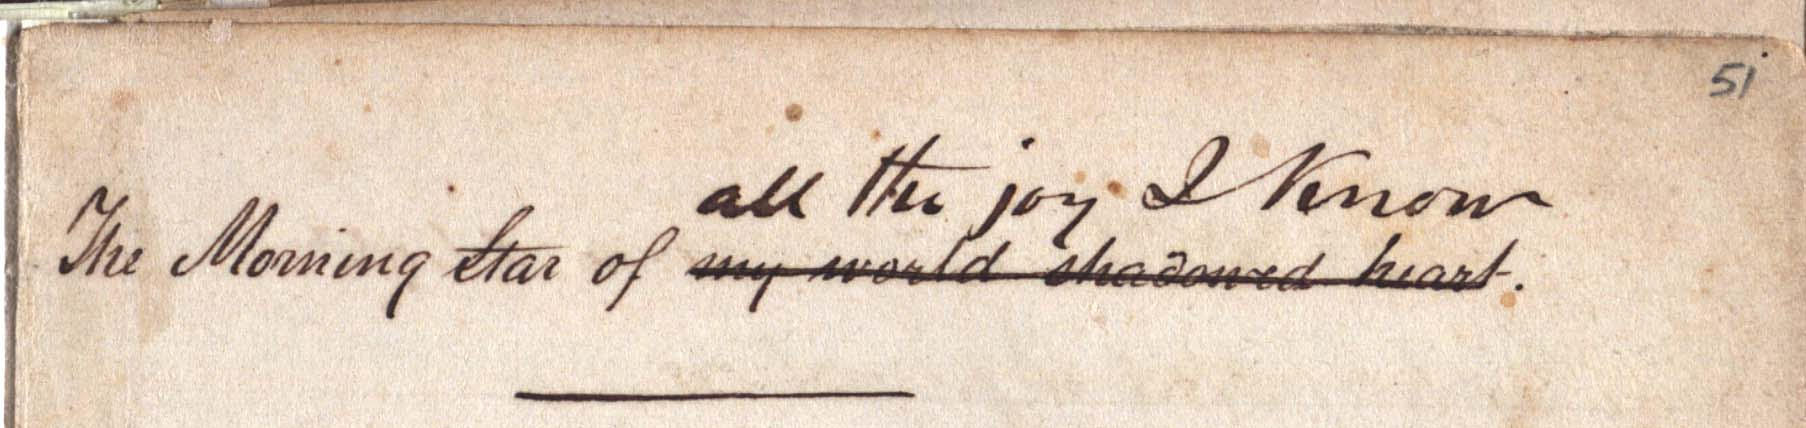 51
all the joy I know
The Morning Star of my world shadowed heart.